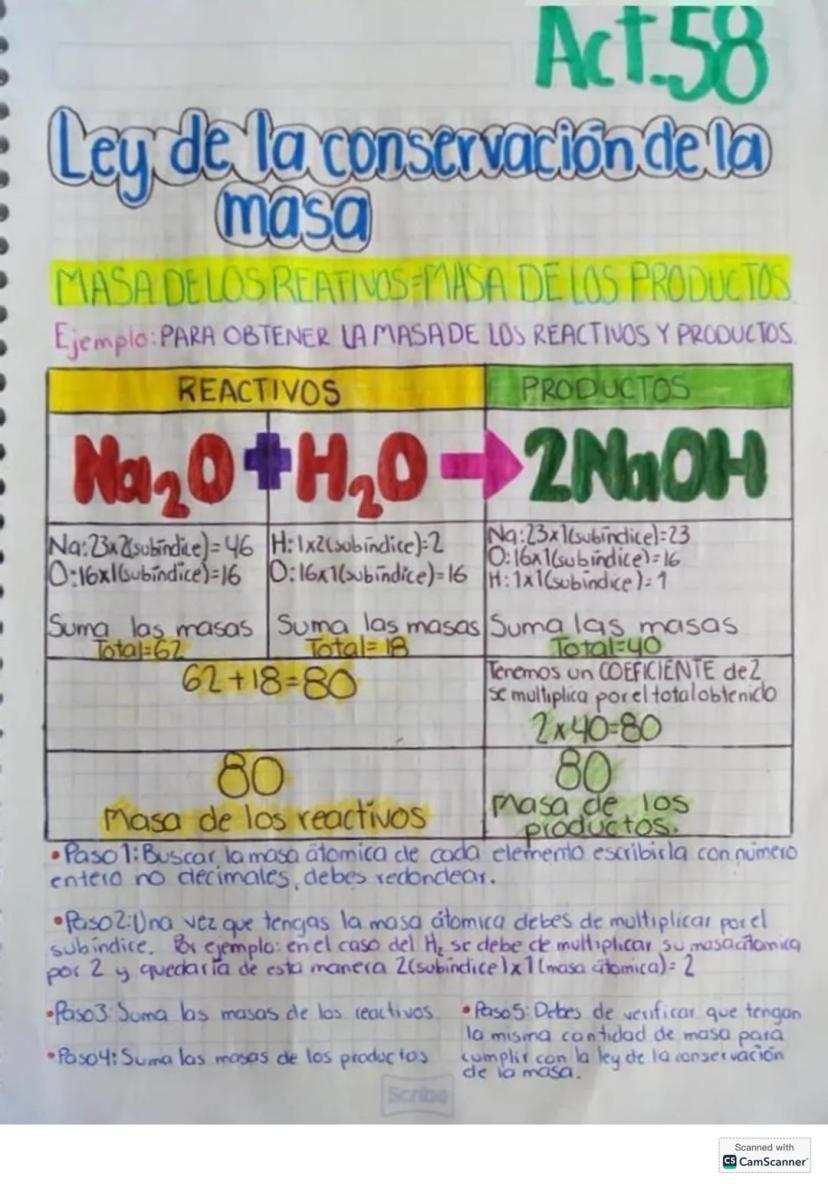 Act.58
Ley de la conservación de la
masa
MASA DE LOS REATIVOS=MASA DE LOS PRODUCTOS
Ejemplo: PARA OBTENER LA MASA DE LOS REACTIVOS Y PRODUCTOS.
REACTIVOS
PRODUCTOS
Na₂O + H₂O → 2NaOH
Na:23x2(subíndice)=46
O:16x1(subíndice)=16
Suma las masas
Total=62
H:1x2(subíndice)=2
O:16x1(subíndice)=16
Suma las masas
Total=18
Na:23x1(subíndice)=23
O:16x1(subíndice)=16
H:1x1(subíndice)=1
Suma las masas
Total=40
62+18=80
Tenemos un COEFICIENTE de 2
se multiplica por el total obtenido
2x40=80
80
Masa de los reactivos
80
Masa de los
productos.
•Paso 1: Buscar la masa átomica de cada elemento escribirla con número
entero no decimales, debes redondear.
•Paso2: Una vez que tengas la masa átomica debes de multiplicar por el
subíndice. Por ejemplo: en el caso del H₂ se debe de multiplicar su masa átomica
por 2 y quedaría de esta manera 2(subíndice)x1(masa átomica)=2
•Paso3: Suma las masas de los reactivos.
•Paso4: Suma las masas de los productos
•Paso5: Debes de verificar que tengan
la misma cantidad de masa para
cumplir con la ley de la conservación
de la masa.
Scribe
Scanned with
CS CamScanner